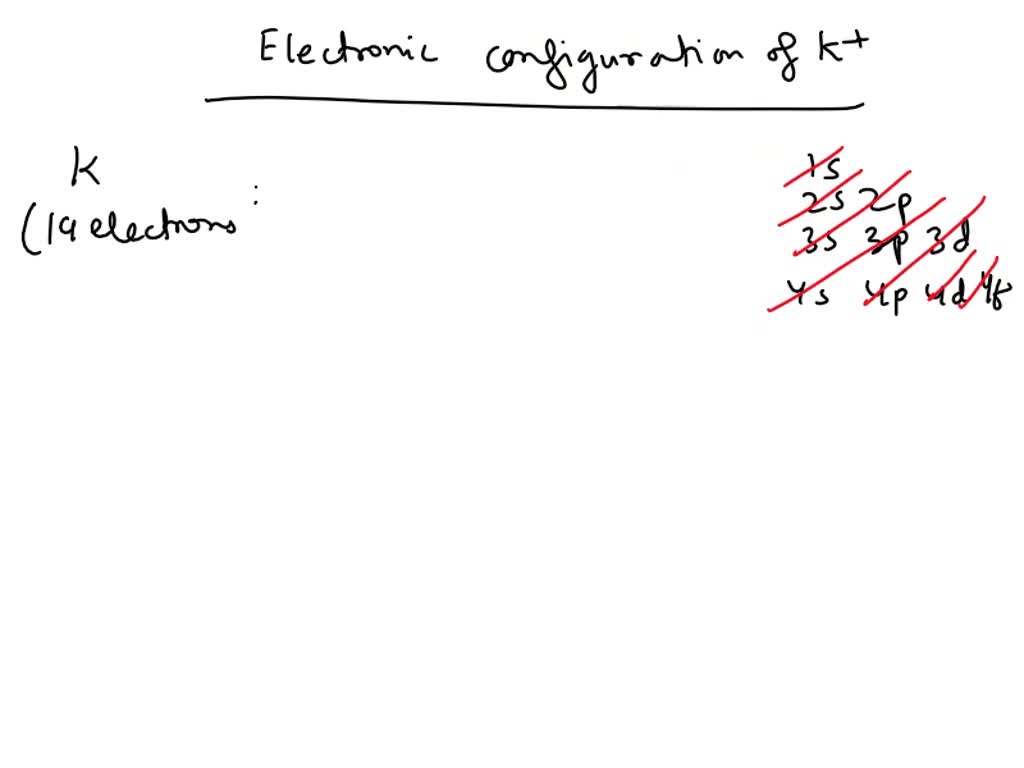 Electronic configuration of K+
K
(19 electrons :
1s
2s 2p
3s 3p 3d
4s 4p 4d 4f